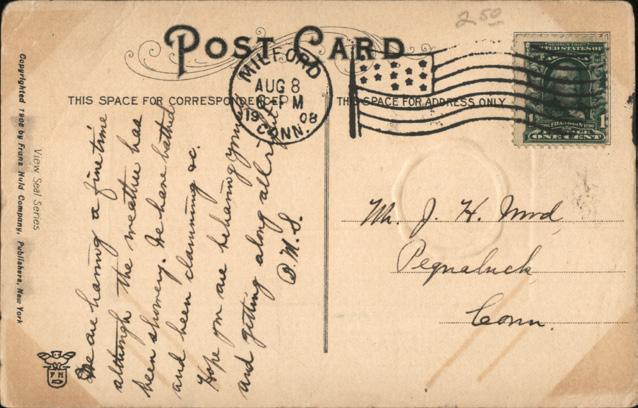 2.50
POST CARD
THIS SPACE FOR CORRESPONDENCE
THIS SPACE FOR ADDRESS ONLY
MILFORD
AUG 8
6 PM
1908
CONN.
UNITED STATES OF
1
1
ONE CENT
We are having a fine time
although the weather has
been showery. We have bathed
and been clamming &c.
Hope you are behaving yourself
and getting along all right
Mr. J. H.
Pequabuck
Conn.
View Seal Series
Copyrighted 1906 by Franz Huld Company, Publishers, New York